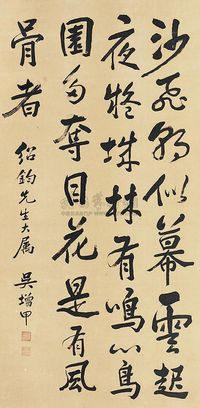 沙飛朝似幕雲起
夜疑城林有鳴心鳥
園多奪目花是有風
骨者
紹鈞先生大屬
吳增甲